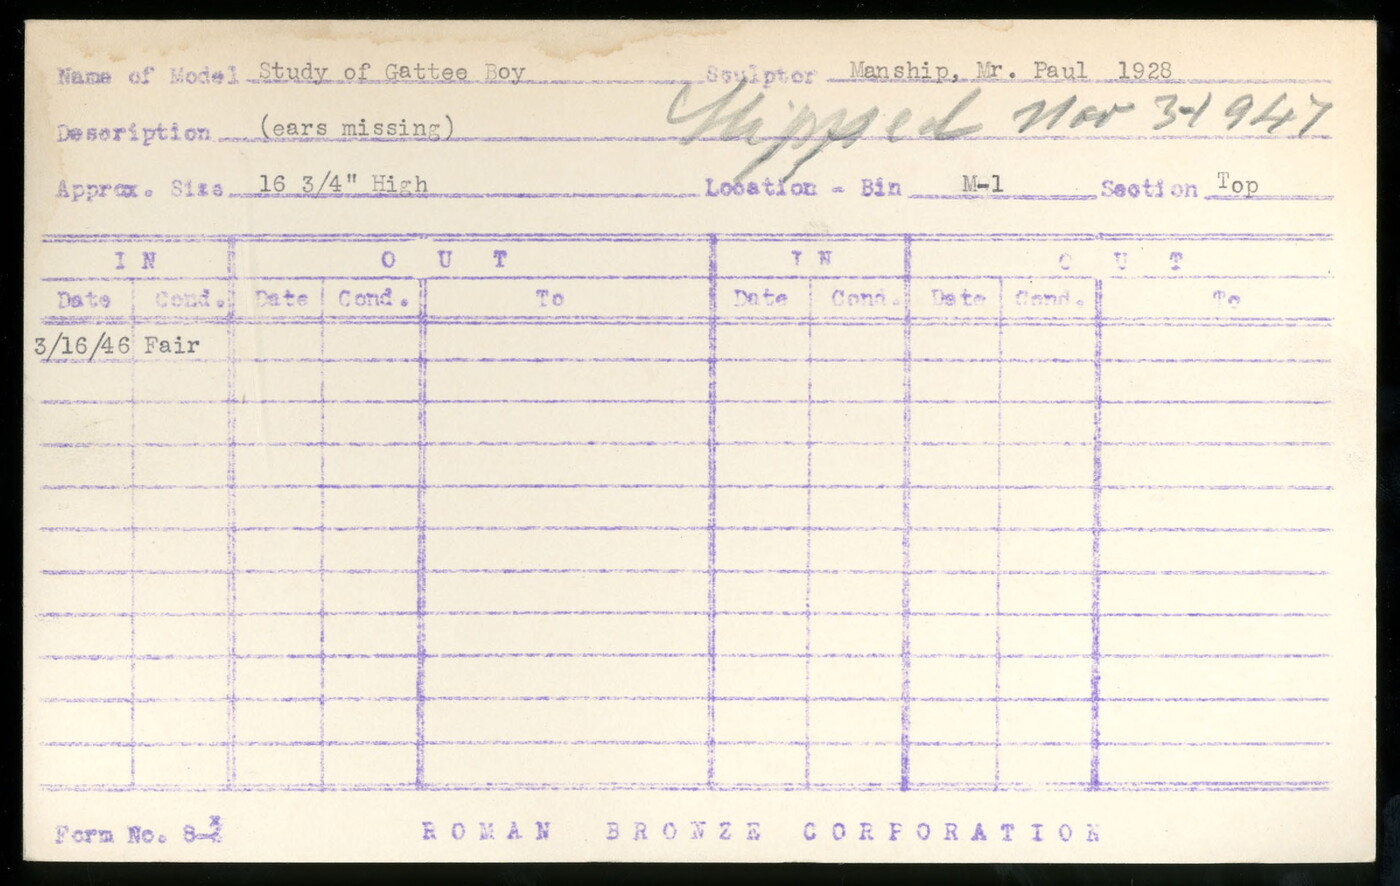 Name of Model Study of Gattee Boy Sculptor Manship, Mr. Paul 1928
Shipped Nov 3-1947
Description (ears missing)
Approx. Size 16 3/4" High Location - Bin M-1 Section Top
IN OUT IN OUT
Date Cond. Date Cond. To Date Cond. Date Cond. To
3/16/46 Fair
Form No. 8-
ROMAN BRONZE CORPORATION